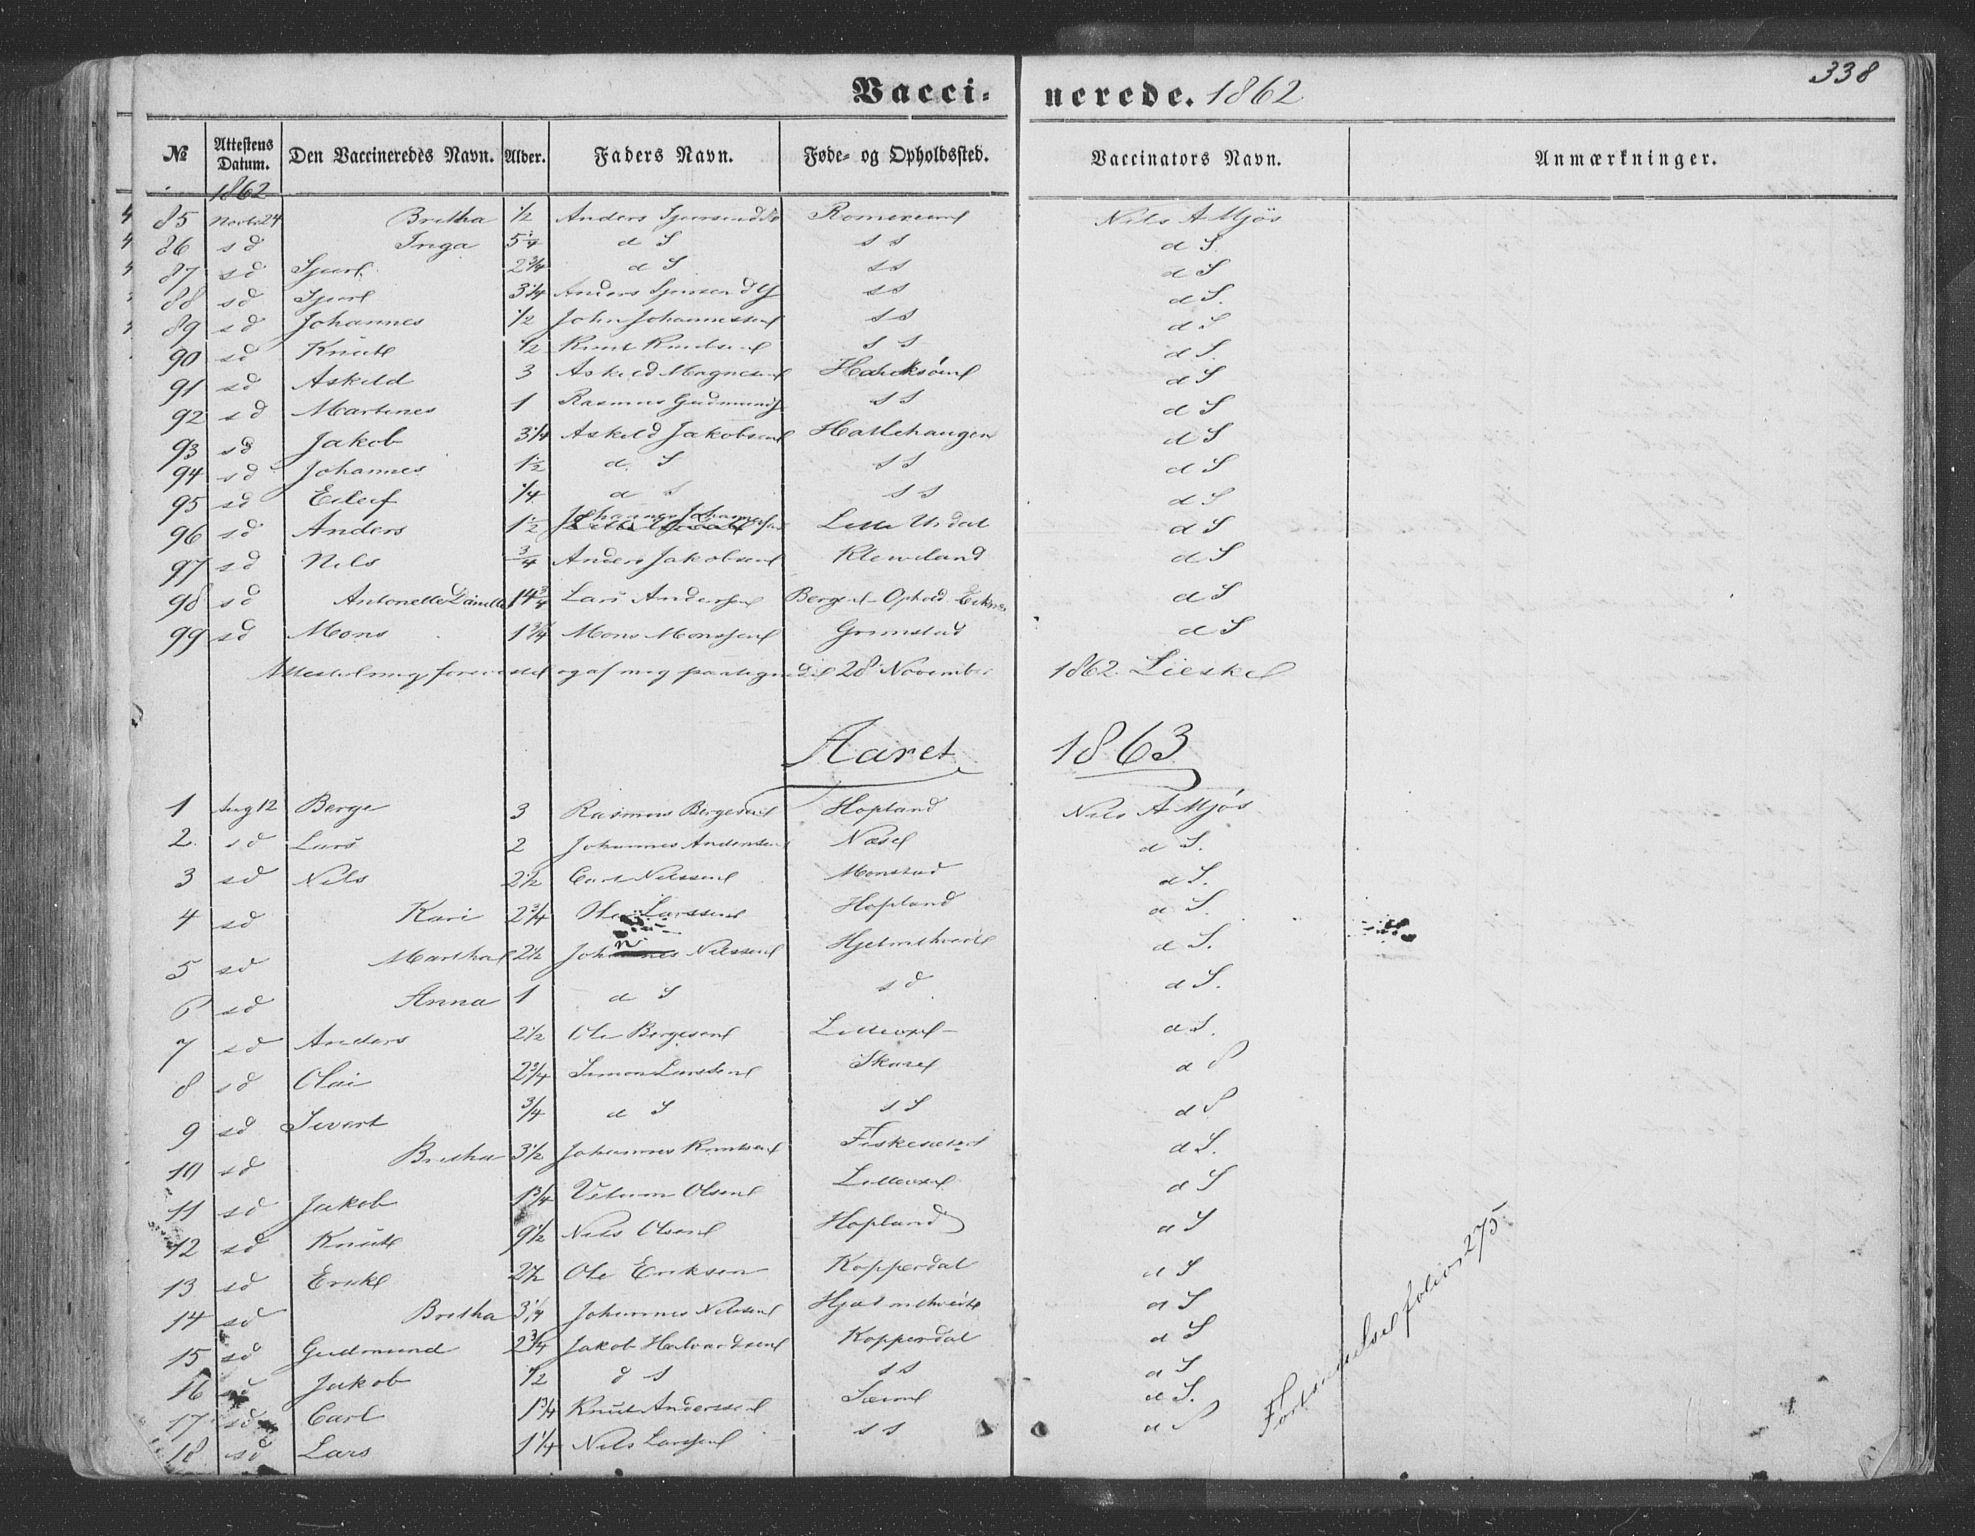 338
Vacci- nerede. 1862
№ Attestens Datum. Den Vaccineredes Navn. Alder. Faders Navn. Føde- og Opholdssted. Vaccinators Navn. Anmærkninger.
1862
85 Novbr 24 Brittha 1/2 Anders Nils A Mjös
86 sd Inga 5 1/4 d S s s d S
87 sd Sjurd 2 3/4 d S s s d S
88 sd Sjurd 3 1/4 Anders s s d S.
89 sd Johannes 1/2 John Johannessen s s d S
90 sd Knud 1/2 Knud Knudsen s s d S.
91 sd Askild 3 Askild Magnesen d S
92 sd Martines 1 Rasmus Gudmunds s s d S
93 sd Jakob 3 1/4 Askild Jakobsen Hatlehaugen d S
94 sd Johannes 1 1/2 d. S s s d S
95 sd Eilef 1/4 d S s s d S
96 sd Anders 1 1/2 Johannes Johannessen Lille Urdal d S
97 sd Nils 3/4 Anders Jakobsen Kleiveland d S
98 sd Antonette Danielle 14 3/4 Lars Andersen Bergen - Ophold d S
99 sd Mons 1 3/4 Mons Monssen Grimstad d S
og af mig 28 November 1862.
Aaret 1863
1 Aug 12 Berge 3 Rasmus Bergesen Hopland Nils A Mjös
2. sd Lars 2 Johannes Andersen Næse d S.
3 sd Nils 2 1/2 Carl Nilssen Monstad d S.
4 sd Kari 2 3/4 Ole Larssen Hopland d S.
5 sd Martha 2 1/2 Nilssen Hjelmtveite d S.
6 sd Anna 1 d S s d d S.
7 sd Anders 2 1/2 Ole Bergesen Lilleoxe d S.
8 sd Olai 2 3/4 Simon Larssen Skare d S
9 sd Sivert 3/4 d S s S d S
10 sd Brittha 3 1/2 Johannes Knudsen Fiskesæter d S.
11 sd Jakob 1 3/4 Olsen Lilleoxe d S
12 sd Knud 9 1/2 Nils Olsen Hopland d S
13 sd Erik 2 1/2 Ole Eriksen Kopperdal d S
14 sd Brittha 3 1/4 Johannes Nilssen Hjelmtveite d S
15 sd Gudmund 2 3/4 Jakob Halvardsen Kopperdal d S
16 sd Jakob 1/2 d s s s d S
17 sd Carl 1 3/4 Knud Anderssen Særvol d S.
18 sd Lars 1 1/4 Nils Larssen s s d S
Fortsættelse folio 275